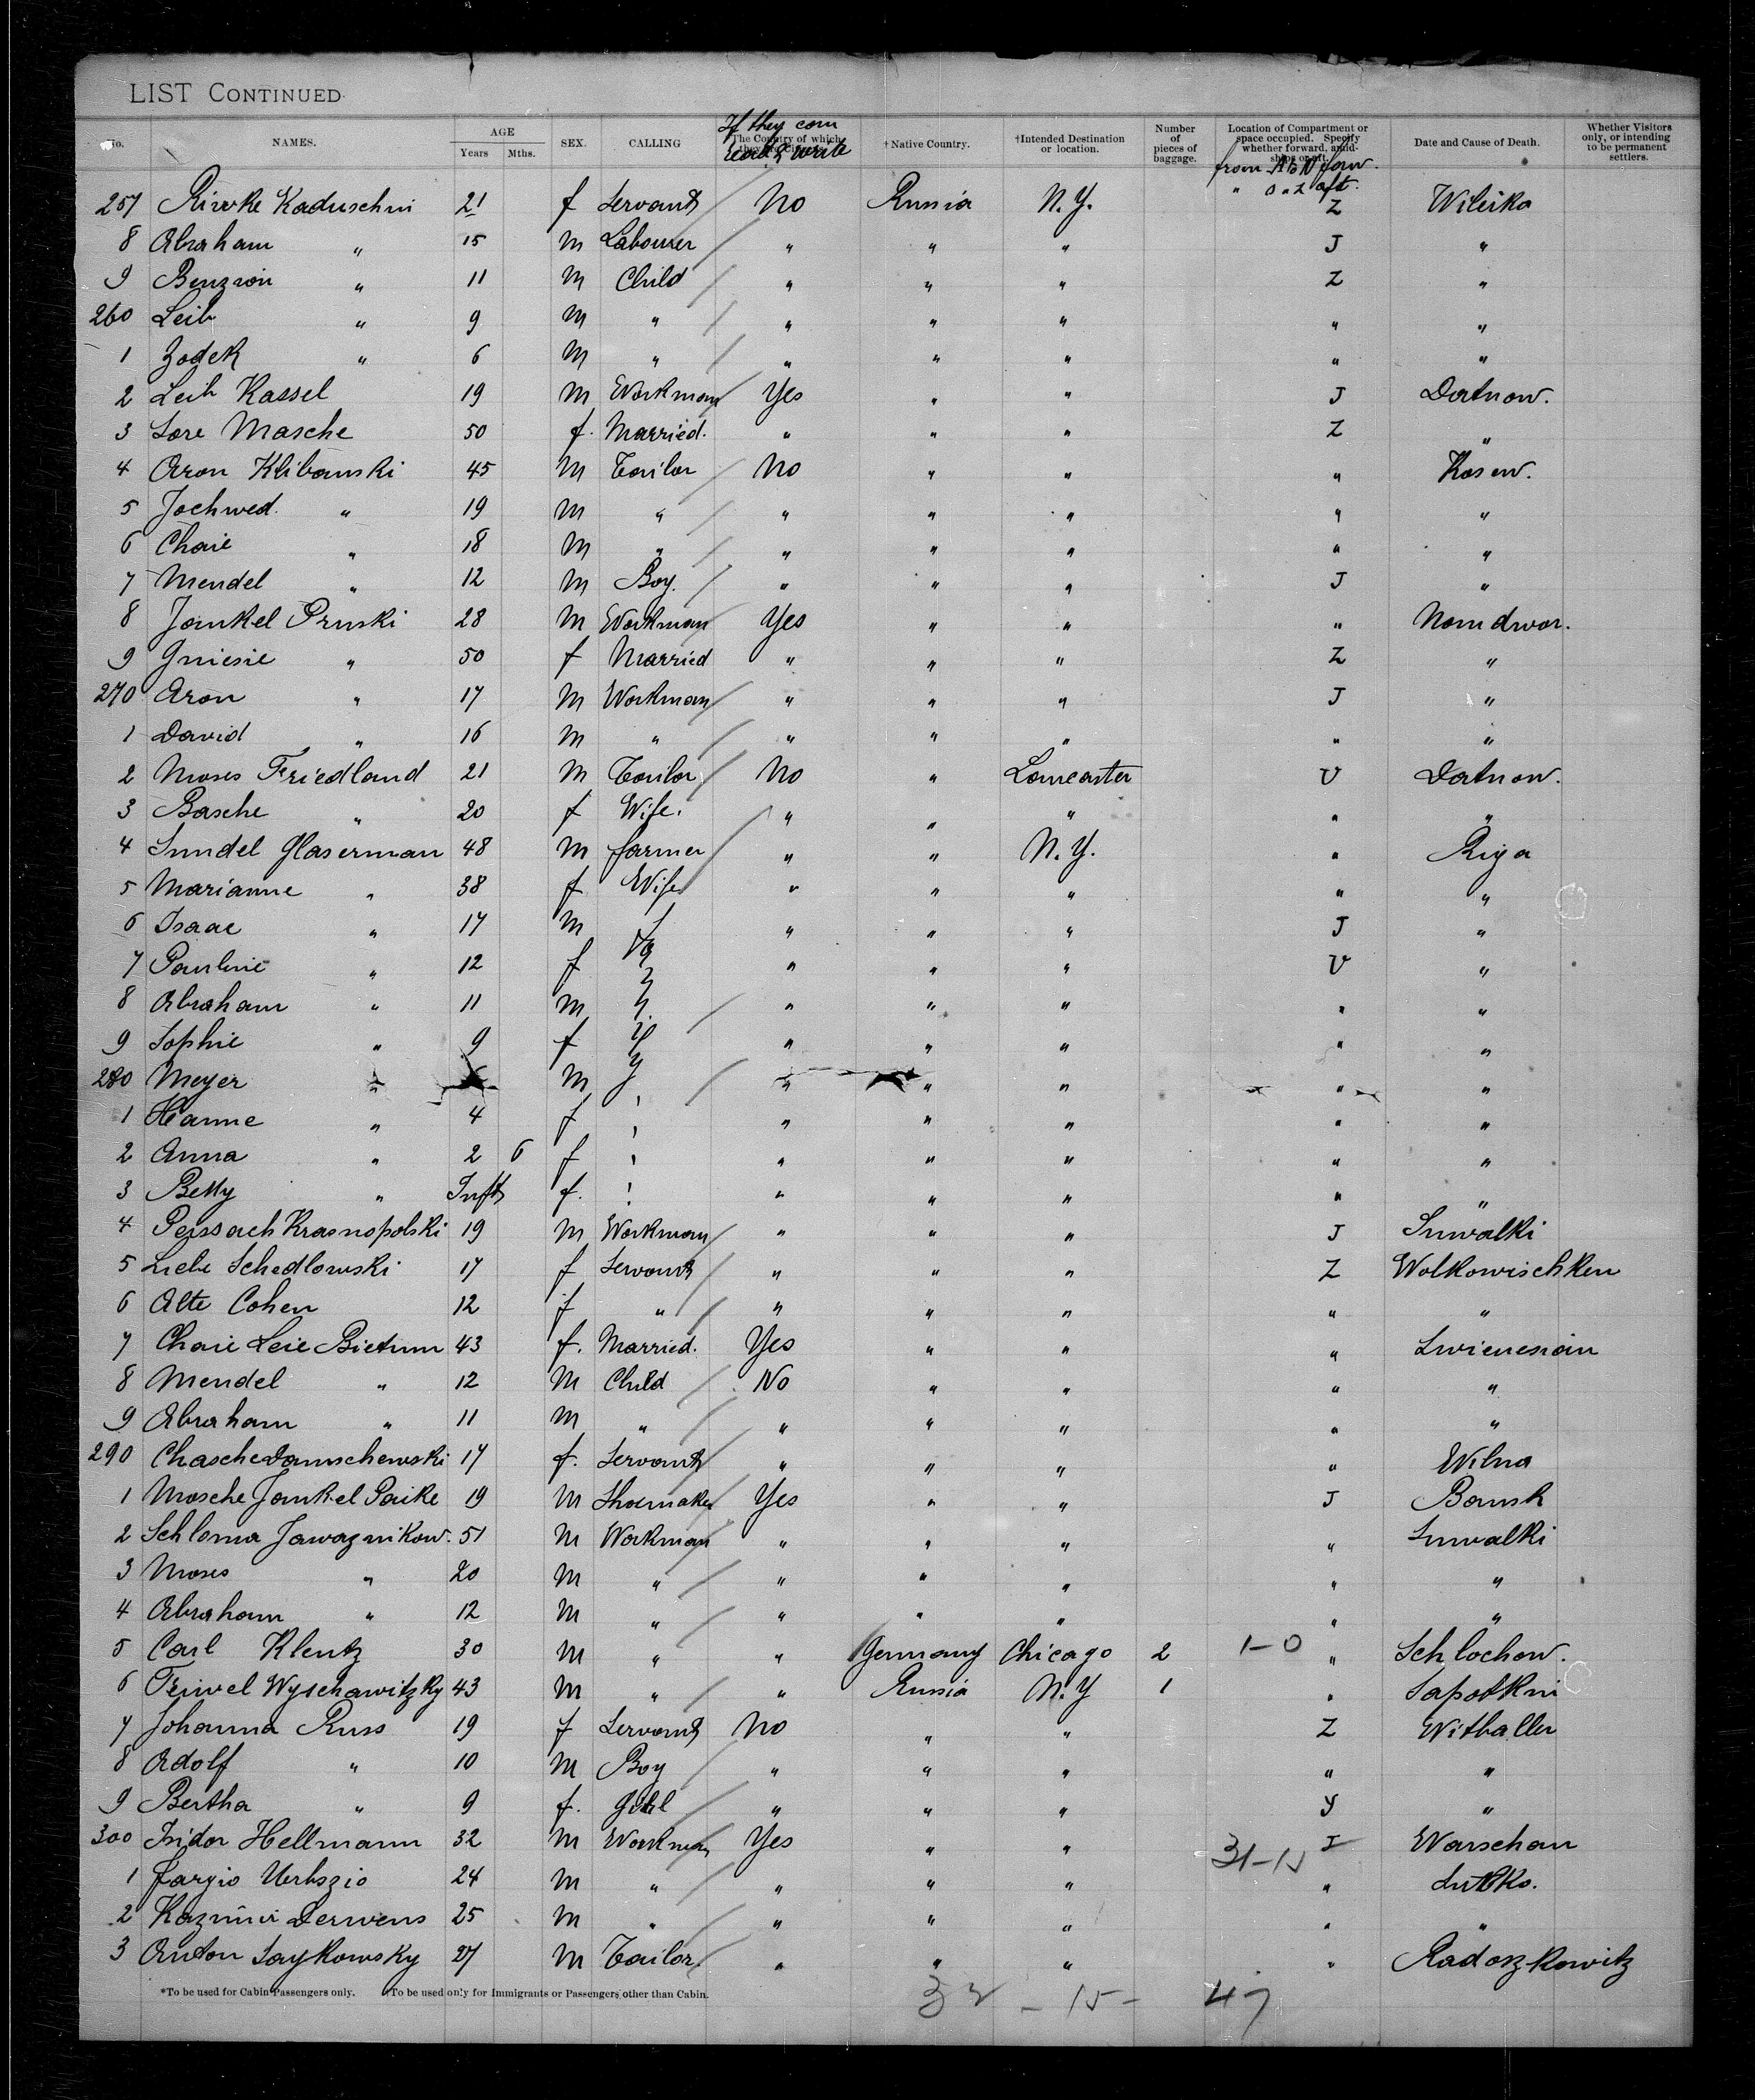 LIST CONTINUED
No. NAMES. AGE Years Mths. SEX. CALLING If they can read & write The Country of which they are citizens †Native Country. †Intended Destination or location. Number of pieces of baggage. Location of Compartment or space occupied. Specify whether forward, amidships or aft. Date and Cause of Death. Whether Visitors only, or intending to be permanent settlers.
from A to N forw.
" O " Z aft.
257 Riwke Kaduschni 21 f Servant No Russia N.Y. Z Wileika
8 Abraham " 15 M Labourer " " " J "
9 Benzion " 11 M Child " " " Z "
260 Leib " 9 M " " " " " "
1 Zodek " 6 M " " " " " "
2 Leib Kassel 19 M Workman Yes " " J Datnow.
3 Sore Masche 50 f. Married. " " " Z "
4 Aron Klibanski 45 M Tailor No " " " Kosew.
5 Jochwed. " 19 M " " " " " "
6 Chaie " 18 M " " " " " "
7 Mendel " 12 M Boy. " " " J "
8 Jankel Pruski 28 M Workman Yes " " " Nomdwor.
9 Gniesie " 50 f Married " " " Z "
270 Aron " 17 M Workman " " " J "
1 David " 16 M " " " " " "
2 Moses Friedland 21 M Tailor No " Lancaster V Datnow.
3 Basche " 20 f Wife. " " " " "
4 Sundel Glaserman 48 M farmer " " N.Y. " Riga
5 Marianne " 38 f Wife " " " " "
6 Isaac " 17 M " " " J "
7 Pauline " 12 f " " " V "
8 Abraham " 11 M " " " " "
9 Sophie " 9 f " " " " "
280 Meyer " M " " " " "
1 Hanne " 4 f " " " " "
2 Anna " 2 6 f " " " " "
3 Betty " Inft f. " " " " "
4 Peissach Krasnopolski 19 M Workman " " " J Suwalki
5 Liebe Schedlowski 17 f Servant " " " Z Wolkowischken
6 Alte Cohen 12 f " " " " " "
7 Chaie Leie Bietum 43 f. Married. Yes " " "
8 Mendel " 12 M Child No " " " "
9 Abraham " 11 M " " " " " "
290 Chasche Danuschewski 17 f. Servant " " " " Wilna
1 Mosche Jankel Paike 19 M Shoemaker Yes " " J Bausk
2 Schloma Jawaznikow. 51 M Workman " " " " Suwalki
3 Moses " 20 M " " " " " "
4 Abraham " 12 M " " " " " "
5 Carl Klentz 30 M " " Germany Chicago 2 1-0 " Schlochow.
6 Feiwel Wyschawitzky 43 M " " Russia N.Y 1 " Sapotkni
7 Johanna Russ 19 f Servant No " " Z Witballen
8 Adolf " 10 M Boy " " " " "
9 Bertha " 9 f. Girl " " " Y "
300 Isidor Hellmann 32 M Workman Yes " " 31-15 J Warschau
1 Jargio Uerbszio 24 M " " " " "
2 Kazimir Derwens 25 M " " " " " "
3 Anton Saykowsky 27 M Tailor. " " " " Radoszkowitz
*To be used for Cabin Passengers only. †To be used only for Immigrants or Passengers other than Cabin.
32 - 15 - 47